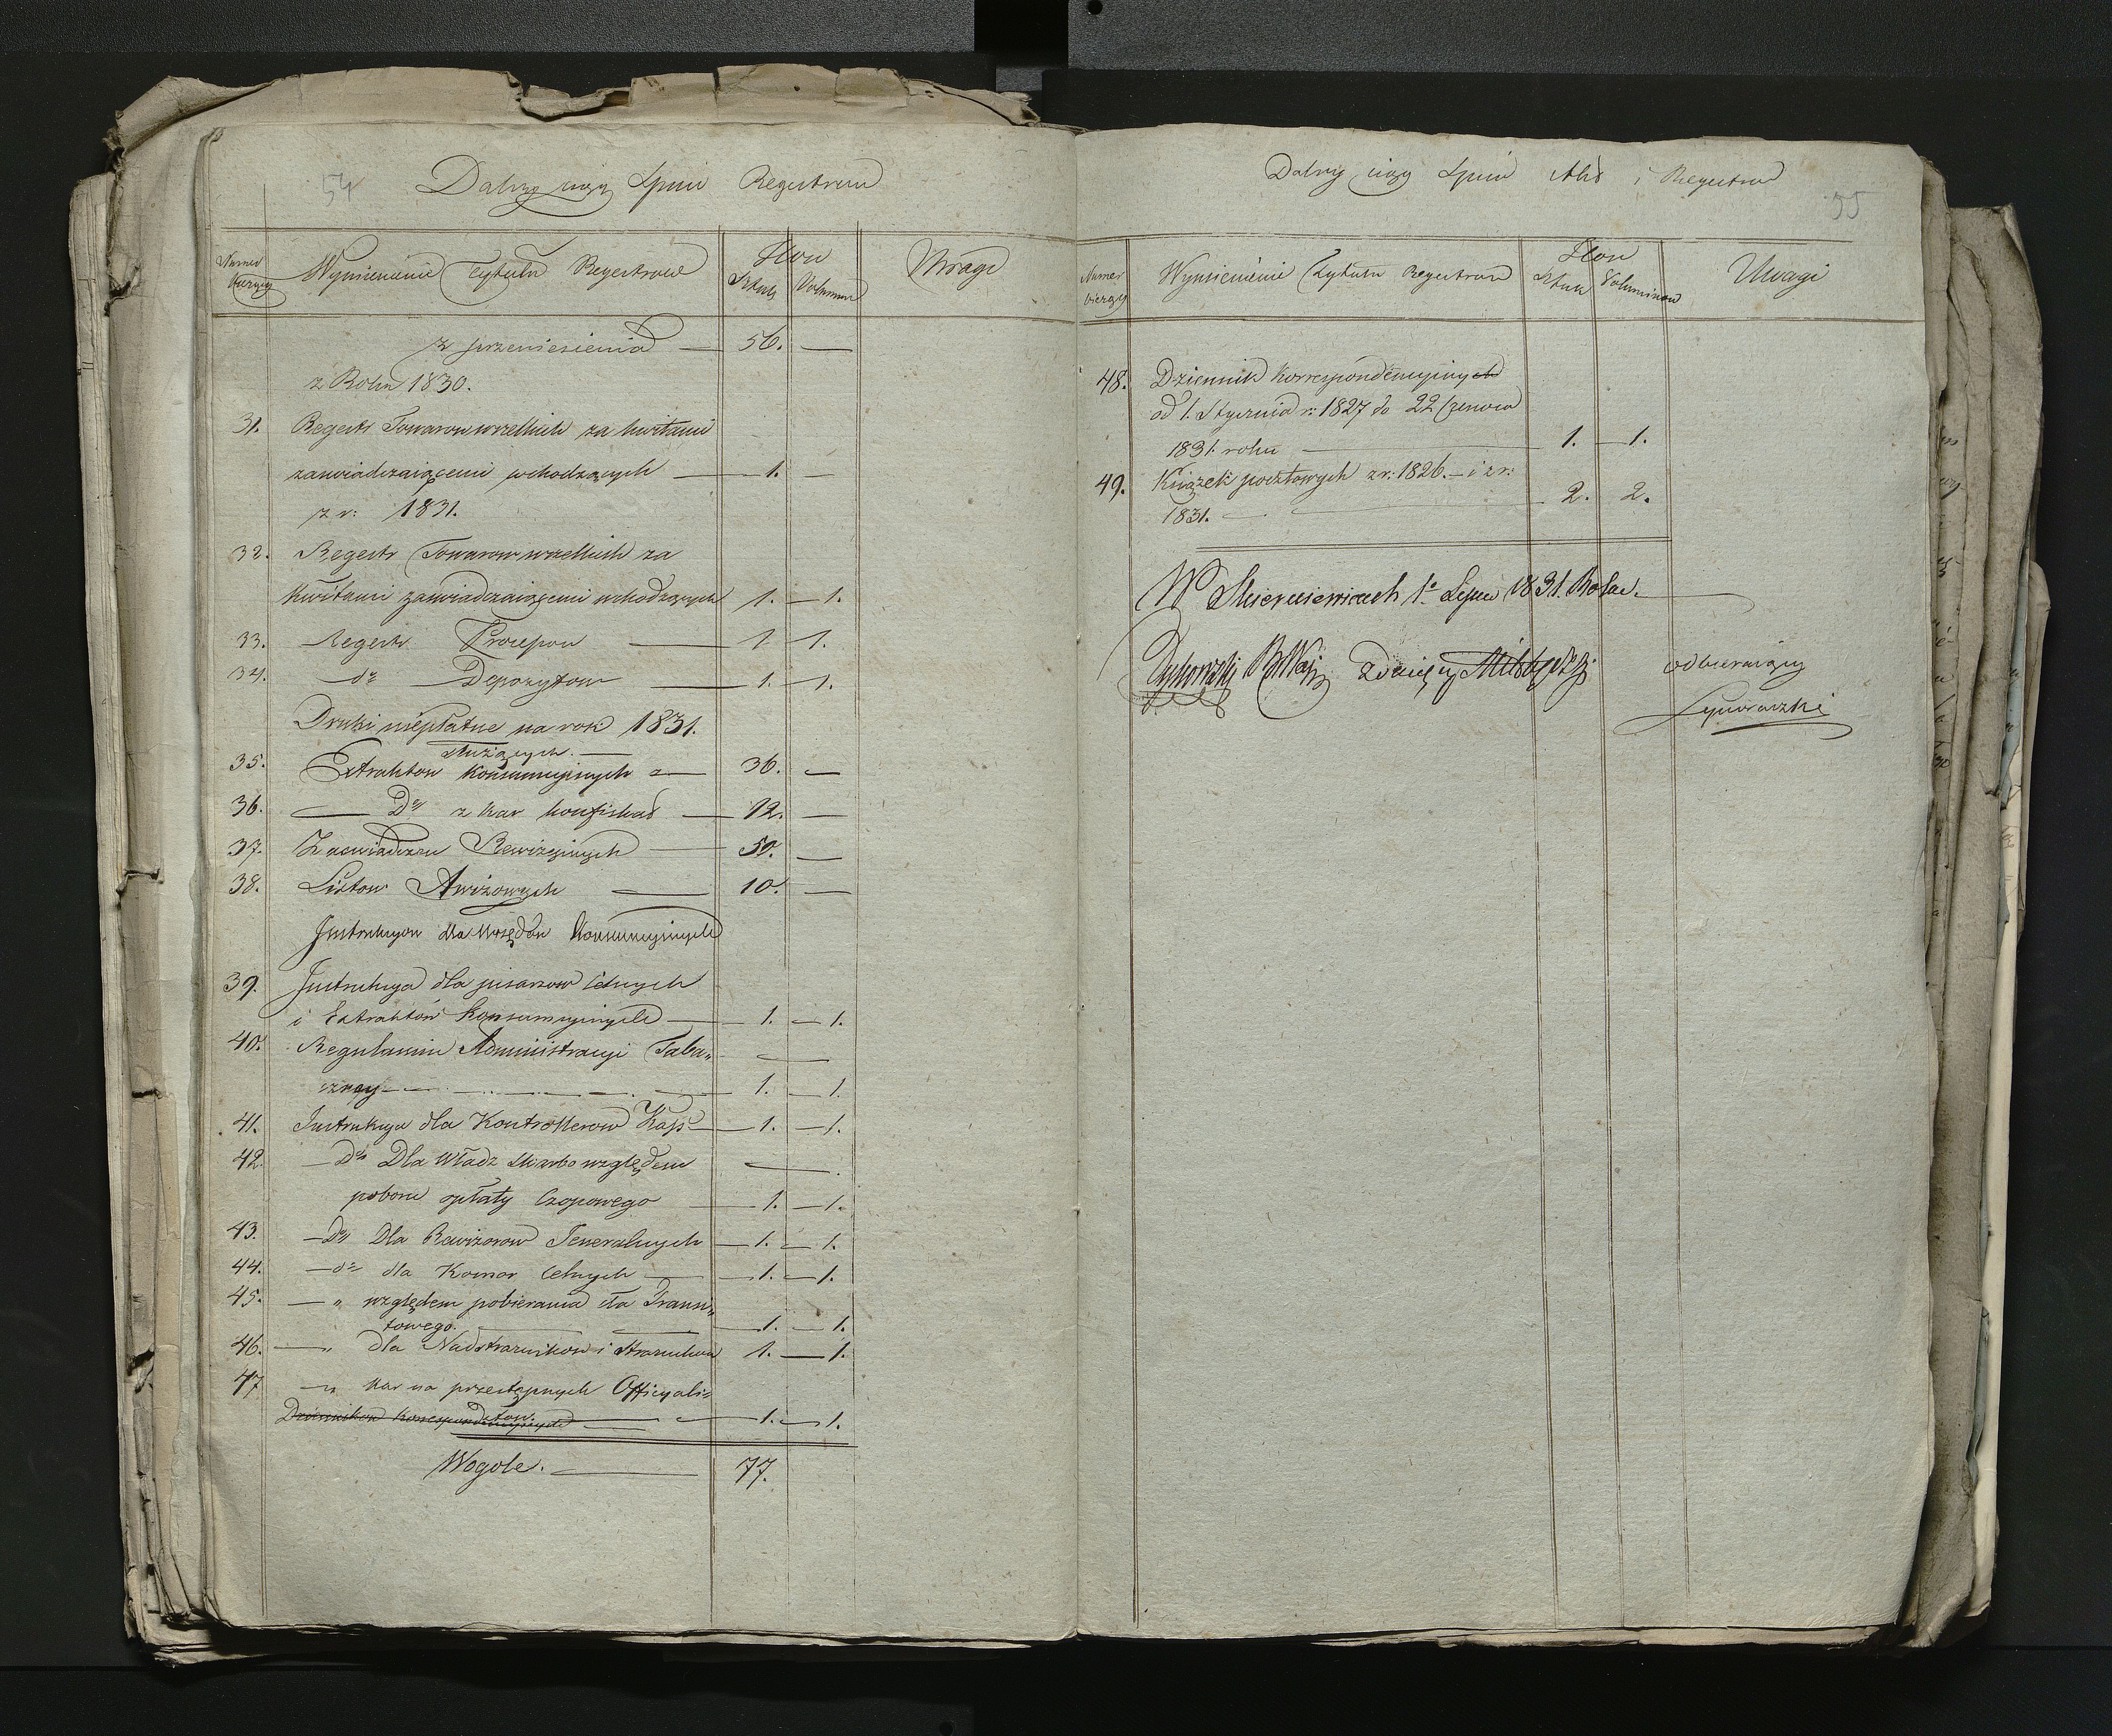 54 Dalszy ciąg Spisu Regestrow
Numer bieżący Wymienienie Tytułu Regestrow Ilość Sztuk Voluminow Uwagi
z przeniesienia — 56. —
z Roku 1830.
31. Regestr Towarow wszelkich za kwitami
zaświadczaiącemi wchodzących — 1. —
z r: 1831.
32. Regestr Towarow wszelkich za
Kwitami zaświadczaiącemi wchodzących 1. — 1.
33. Regestr Procepow — 1 1.
34. — do Depozytow — 1. 1.
Druki niepłatne na rok 1831.
służących. —
35. Extraktow Konsumcyinych — 36. —
36. — Do z kar konfiskat — 12. —
37. Zaswiadczen Rewizyinych — 50. —
38. Listow Awizowych — 10. —
Instrukcyow dla Urzędow Konsumcyinych
39. Instrukcya dla pisarzow Celnych
i Extraktów Konsumcyinych — 1. — 1.
40. Regulamin Administracyi Taba„
cznej — 1. — 1.
41. Instrukcya dla Kontrollerow Kass — 1. — 1.
42. — Do Dla Władz Skarbo względem —
poboru opłaty Czopowego — 1. — 1.
43. — Do Dla Rewizorow Jeneralnych — 1. — 1.
44. — do dla Komor Celnych — 1. — 1.
45. — „ względem pobierania cła Transi„
towego. — 1. — 1.
46. — „ dla Nadstrażnikow i Strażnikow 1. — 1.
47 — „ kar na przestępnych Officyali„
stow. — 1. — 1.
Dziennikow Korrespondencyinych —
Wogole. — 77.
55
Dalszy ciąg Spisu Akt i Regestrow
Numer bieżący Wymienienie Tytułu Regestrow Ilość Sztuk Voluminow Uwagi
48. Dziennik Korrespondencyinych
od 1. Stycznia r: 1827 do 22 Czerwca
1831. roku — 1. — 1.
49. Książek pocztowych z r: 1826. — i z r:
1831. — 2. 2.
W Skierniewicach 1o Lipca 1831. Roku. —
Zdaiący
odbieraiący